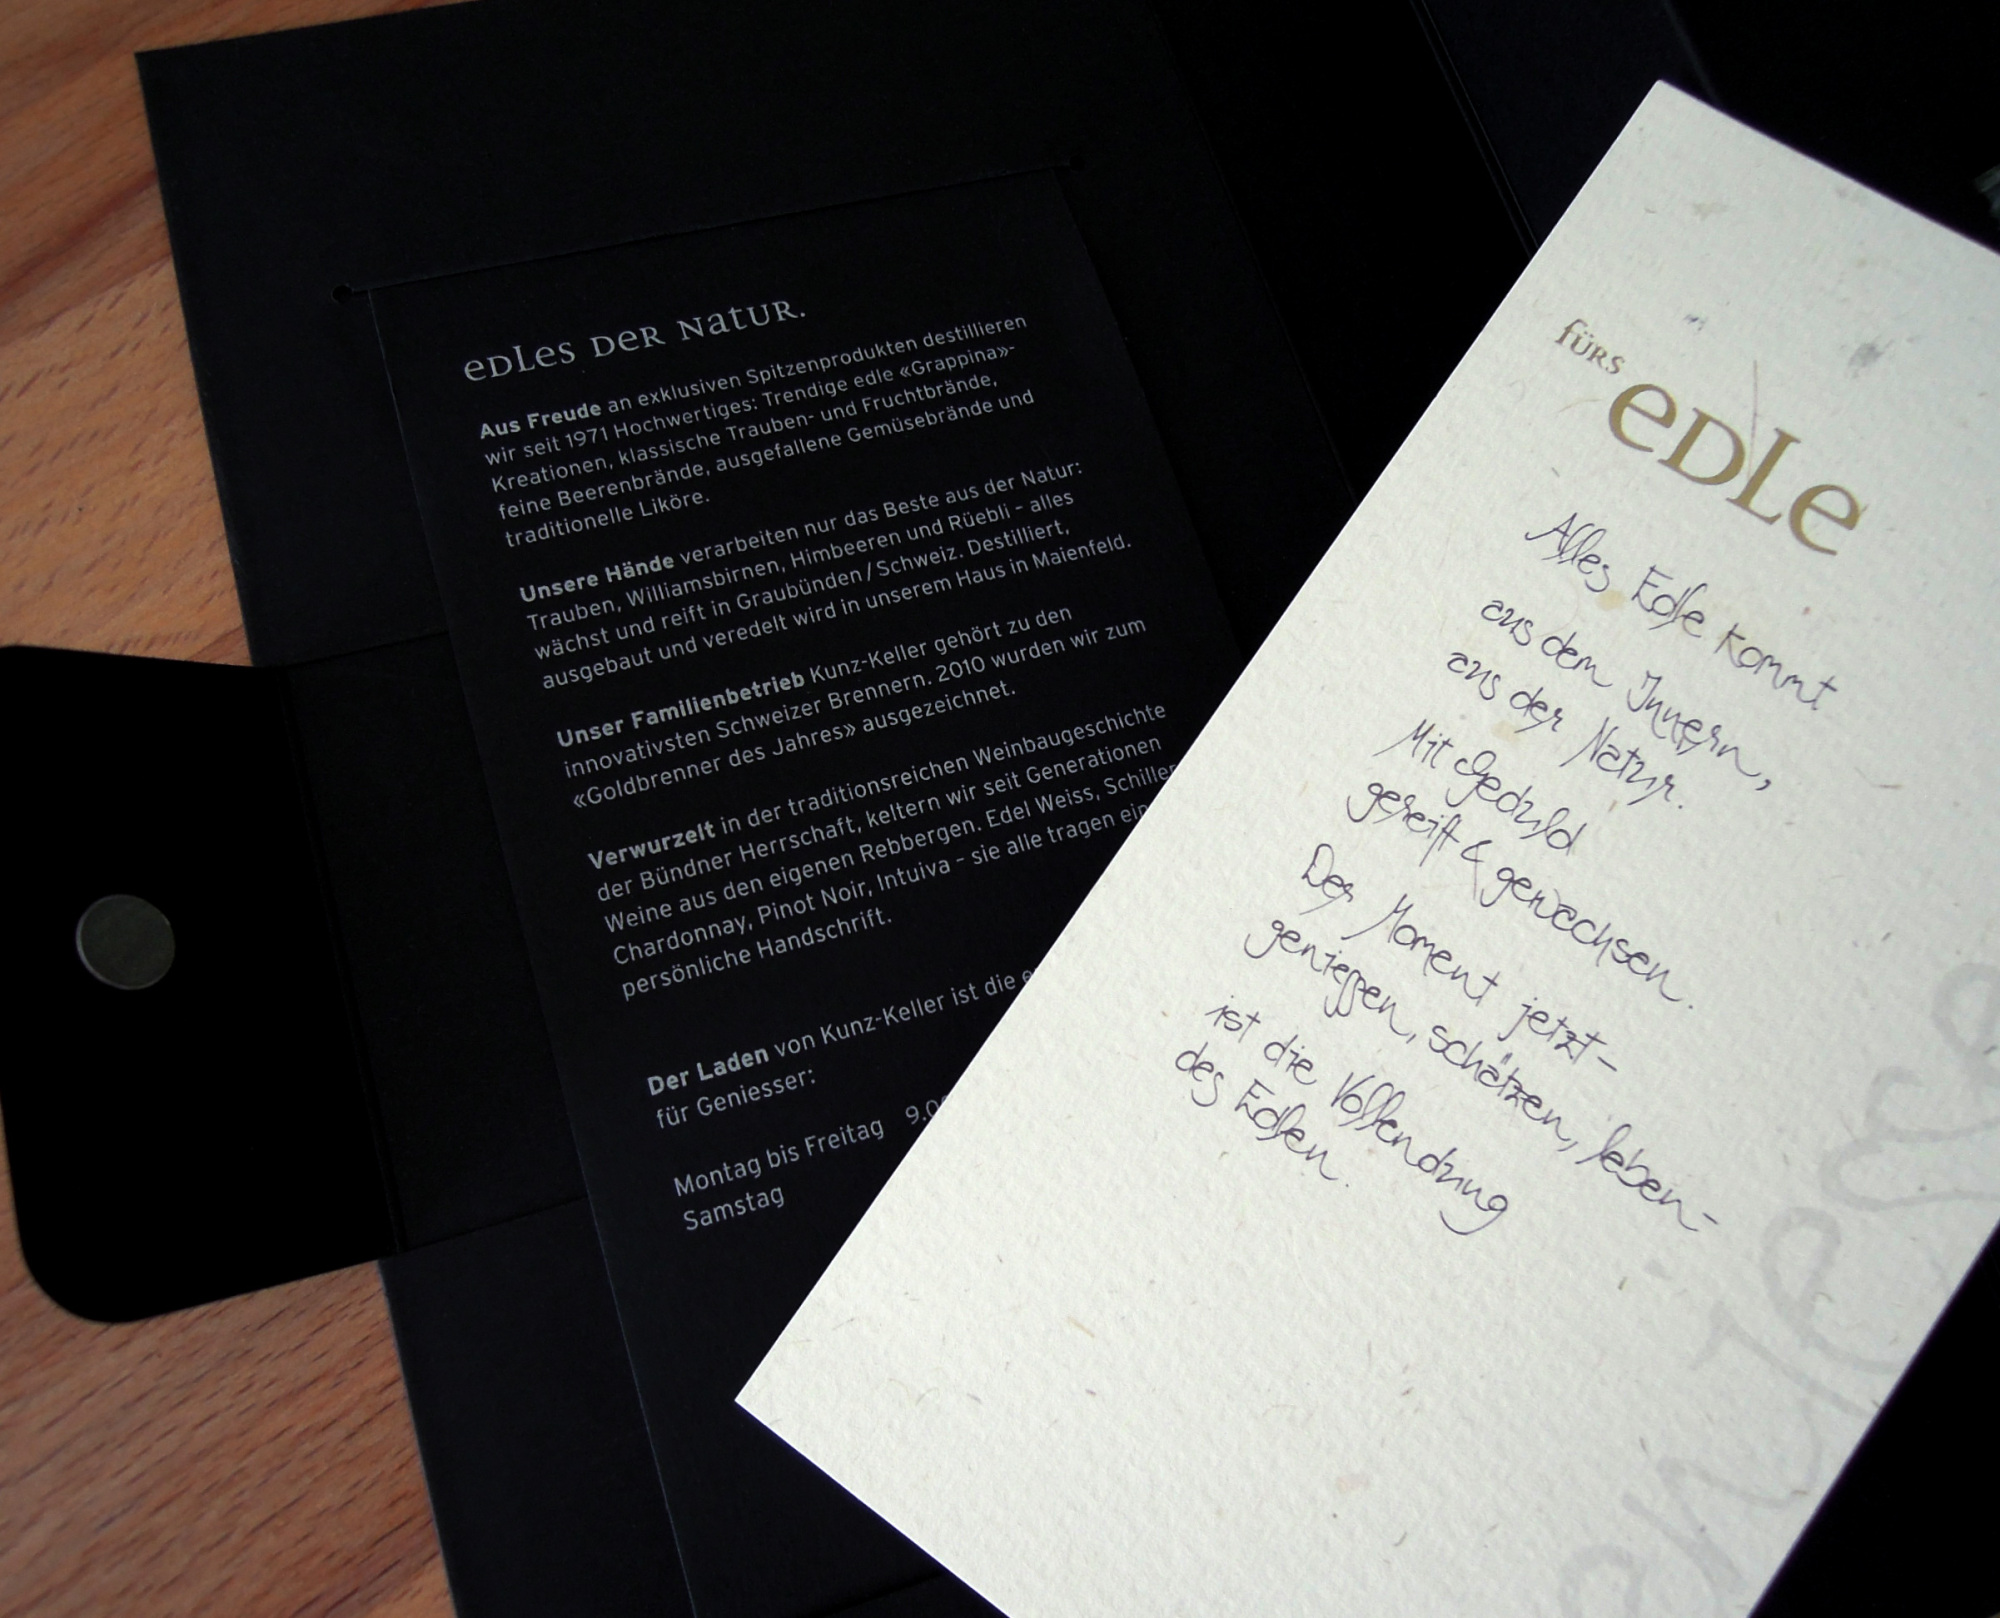 eDLes DeR NatUR.
Aus Freude an exklusiven Spitzenprodukten destillieren
wir seit 1971 Hochwertiges: Trendige edle «Grappina»-
Kreationen, klassische Trauben- und Fruchtbrände,
feine Beerenbrände, ausgefallene Gemüsebrände und
traditionelle Liköre.
Unsere Hände verarbeiten nur das Beste aus der Natur:
Trauben, Williamsbirnen, Himbeeren und Rüebli – alles
wächst und reift in Graubünden / Schweiz. Destilliert,
ausgebaut und veredelt wird in unserem Haus in Maienfeld.
Unser Familienbetrieb Kunz-Keller gehört zu den
innovativsten Schweizer Brennern. 2010 wurden wir zum
«Goldbrenner des Jahres» ausgezeichnet.
Verwurzelt in der traditionsreichen Weinbaugeschichte
der Bündner Herrschaft, keltern wir seit Generationen
Weine aus den eigenen Rebbergen. Edel Weiss, Schiller
Chardonnay, Pinot Noir, Intuiva – sie alle tragen ein
persönliche Handschrift.
Der Laden von Kunz-Keller ist die
für Geniesser:
Montag bis Freitag 9.0
Samstag
fÜRS
eDLe
Alles Edle kommt
aus dem Innern,
aus der Natur.
Mit Geduld
gereift & gewachsen.
Der Moment jetzt-
geniessen, schätzen, leben-
ist die Vollendung
des Edlen.